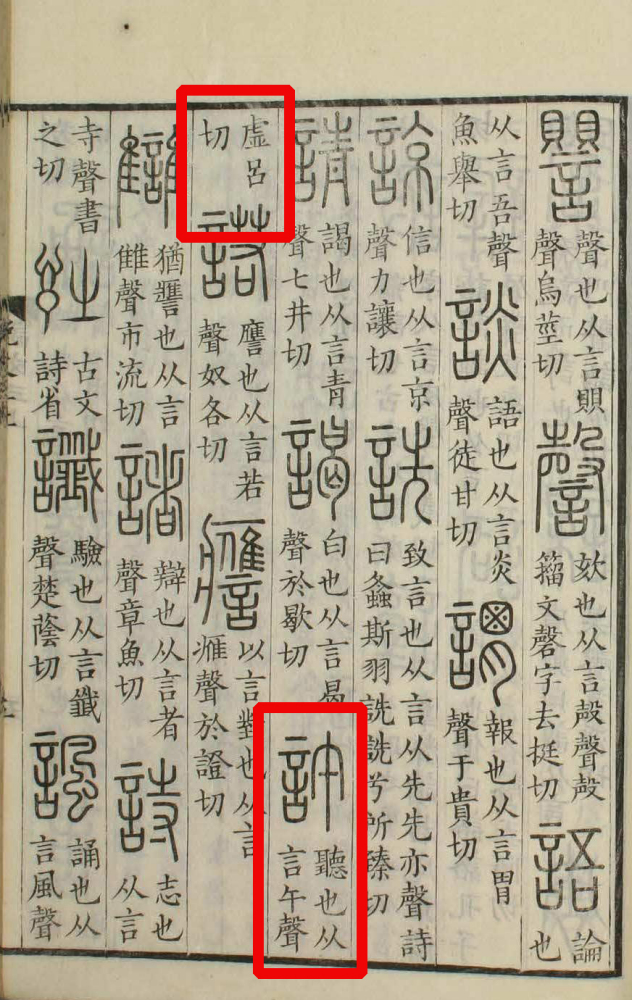 譻聲也从言賏聲烏莖切謦欬也从言殸聲殸籒文磬字去挺切語論也
从言吾聲魚舉切談語也从言炎聲徒甘切謂報也从言胃聲于貴切
諒信也从言京聲力讓切詵致言也从言从先先亦聲詩曰螽斯羽詵詵兮所臻切
請謁也从言青聲七井切謁白也从言曷聲於歇切許聽也从言午聲
虛呂切諾譍也从言若聲奴各切譍以言對也从言䧹聲於證切
讎猶譍也从言雔聲市流切諸辯也从言者聲章魚切詩志也从言
寺聲書之切𧥳古文詩省讖驗也从言韱聲楚蔭切諷誦也从言風聲